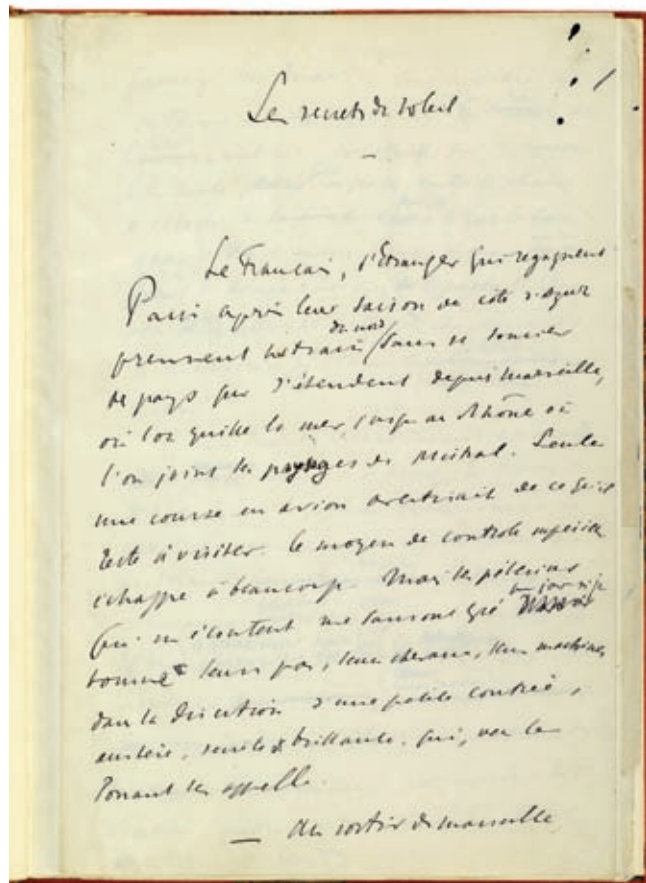 Les secrets du soleil
Le Français, l'Etranger qui regagnent
Paris après leur saison de côte d'azur
prennent le train du nord sans se soucier
du pays qui s'étendent depuis Marseille,
où l'on quitte la mer, jusqu'au Rhône où
l'on joint les paysages de Mistral. Seule
une course en avion avertirait de ce qu'il
reste à visiter. Ce moyen de controle supérieur
échappe à beaucoup. Mais les pélerins
qui m'écoutent me sauront gré un jour si je
tourne leurs pas, leurs chevaux, leurs machines
dans la direction d'une petite contrée,
austère, secrète & brillante, qui, vers le
Ponant les appelle.
— Au sortir de Marseille